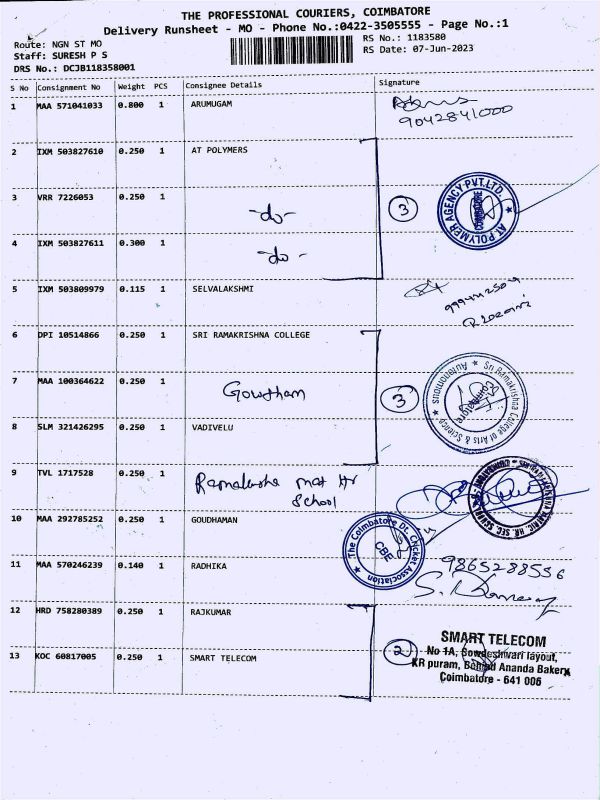 THE PROFESSIONAL COURIERS, COIMBATORE
Delivery Runsheet - MO - Phone No.:0422-3505555 - Page No.:1
Route: NGN ST MO
RS No.: 1183580
Staff: SURESH P S
RS Date: 07-Jun-2023
DRS No.: DCJB118358001
S No Consignment No Weight PCS Consignee Details Signature
1 MAA 571041033 0.800 1 ARUMUGAM
9042841000
2 IXM 503827610 0.250 1 AT POLYMERS
3 VRR 7226053 0.250 1 -do- 3
AT POLYMER AGENCY PVT.LTD. COIMBATORE
4 IXM 503827611 0.300 1 -do-
5 IXM 503809979 0.115 1 SELVALAKSHMI
6 DPI 10514866 0.250 1 SRI RAMAKRISHNA COLLEGE
7 MAA 100364622 0.250 1 Gowtham 3
Sri Ramakrishna College of Arts & Science Autonomous Coimbatore
8 SLM 321426295 0.250 1 VADIVELU
9 TVL 1717528 0.250 1 Ramakrishna mat Hr
School
10 MAA 292785252 0.250 1 GOUDHAMAN
The Coimbatore Dt. Cricket Association CBE
11 MAA 570246239 0.140 1 RADHIKA
9865288556
12 HRD 758280389 0.250 1 RAJKUMAR
13 KOC 60817005 0.250 1 SMART TELECOM 2
SMART TELECOM
No 1A, Sowdeshwari layout,
KR puram, Behind Ananda Bakery
Coimbatore - 641 006